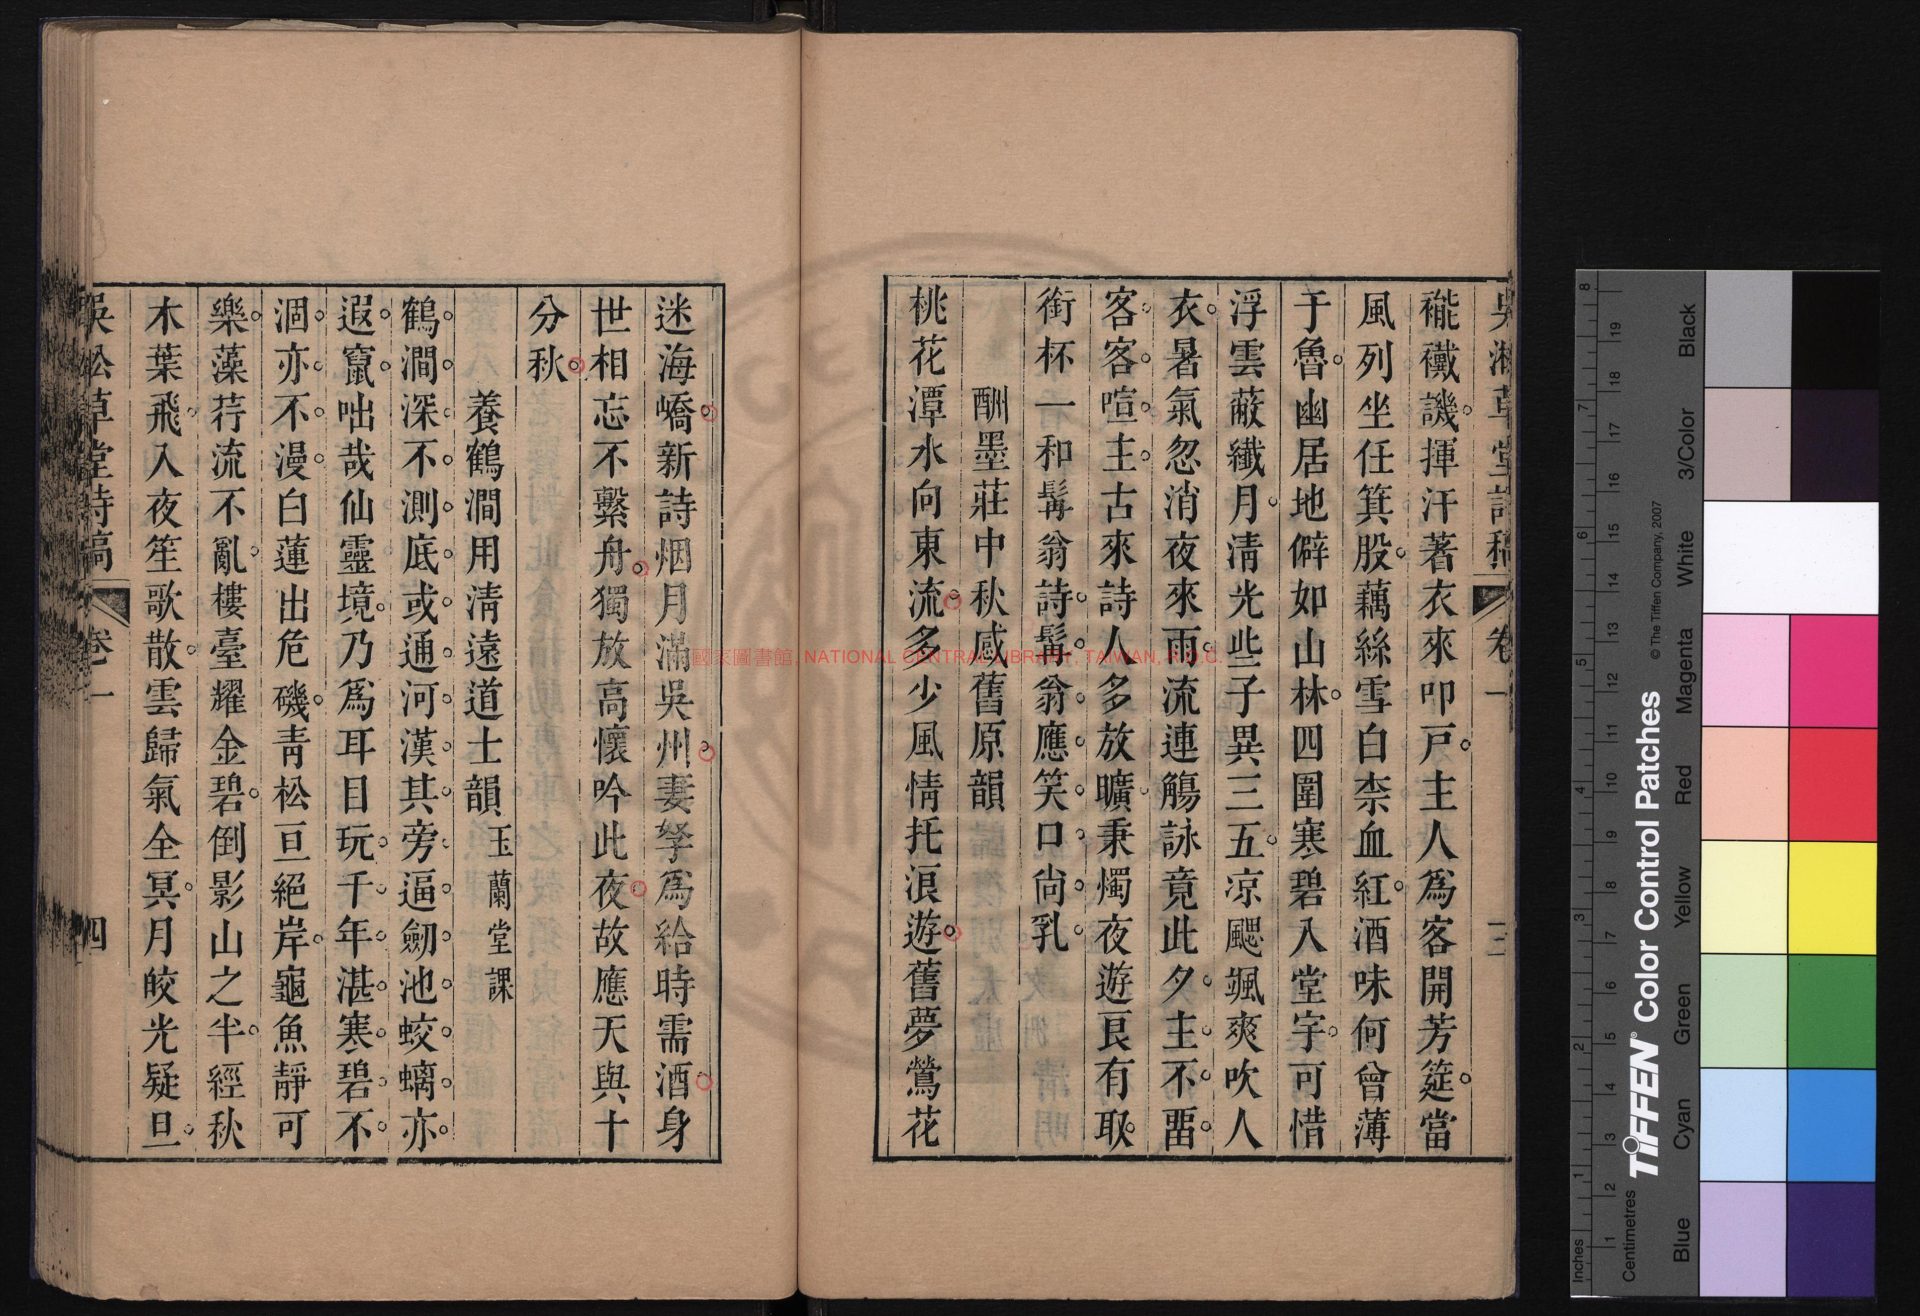 吳淞草堂詩稿 卷一 三
褦襶譏揮汗著衣來叩戸主人爲客開芳筵當
風列坐任箕股藕絲雪白柰血紅酒味何曾薄
于魯幽居地僻如山林四圍寒碧入堂宇可惜
浮雲蔽纖月清光些子異三五凉颸颯爽吹人
衣暑氣忽消夜來雨流連觴詠竟此夕主不畱
客客喧主古來詩人多放曠秉燭夜遊良有取
銜杯一和髯翁詩髯翁應笑口尚乳
酬墨莊中秋感舊原韻
桃花潭水向東流多少風情托浪遊舊夢鶯花
迷海嶠新詩烟月滿吳州妻孥爲給時需酒身
世相忘不繫舟獨放高懷吟此夜故應天與十
分秋
養鶴澗用淸遠道士韻 玉蘭堂課
鶴澗深不測底或通河漢其旁逼劒池蛟螭亦
遐竄咄哉仙靈境乃爲耳目玩千年湛寒碧不
涸亦不漫白蓮出危磯靑松亘絕岸龜魚靜可
樂藻荇流不亂樓臺耀金碧倒影山之半經秋
木葉飛入夜笙歌散雲歸氣全冥月皎光疑旦
吳淞草堂詩稿 卷一 四
國家圖書館, NATIONAL CENTRAL LIBRARY, TAIWAN, R.O.C.
Inches
Centimetres
TIFFEN® Color Control Patches
© The Tiffen Company, 2007
Blue
Cyan
Green
Yellow
Red
Magenta
White
3/Color
Black